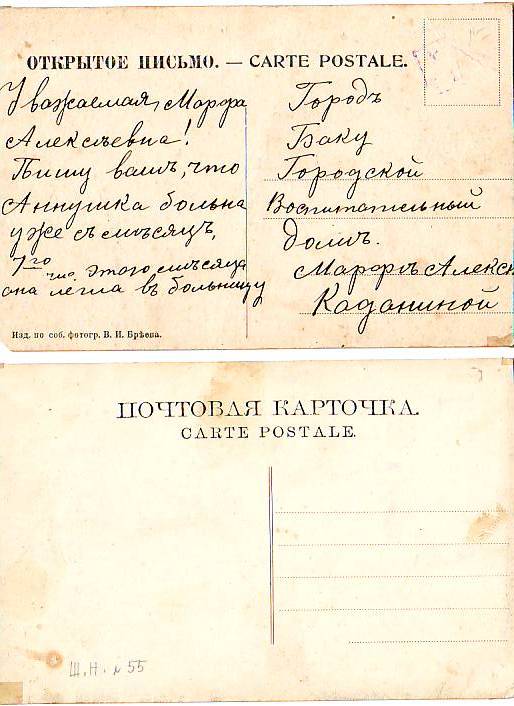 ОТКРЫТОЕ ПИСЬМО. — CARTE POSTALE.
Уважаемая, Марфа
Алексѣевна!
Пишу вамъ, что
Аннушка больна
уже съ мѣсяцъ,
7го числ. этого мѣсяца
она легла въ больницу
Городъ
Баку
Городской
Воспитательный
домъ.
Марфѣ Алексѣ
Каданиной
Изд. по соб. фотогр. В. И. Брѣева.
ПОЧТОВАЯ КАРТОЧКА.
CARTE POSTALE.
Щ.Н. № 55